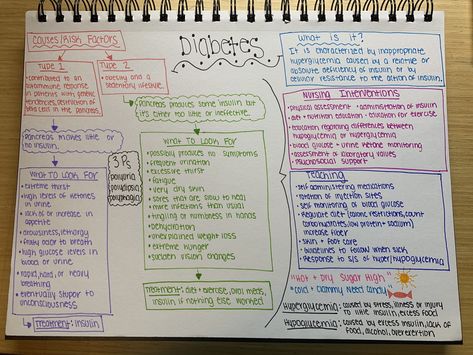 Diabetes
Causes/Risk Factors
Type 1
• contributed to an
autoimmune response
in patients with genetic
tendencies, destruction of
beta cells in the pancreas.
Pancreas makes little or
no insulin.
What to look for
• extreme thirst
• high levels of ketones in
urine
• lack of or increase in
appetite
• drowsiness, lethargy
• fruity odor to breath
• high glucose levels in
blood or urine
• rapid, hard, or heavy
breathing
• eventually stupor to
unconsciousness
Treatment: insulin
Type 2
• obesity and a
sedentary lifestyle.
Pancreas produces some insulin but
it's either too little or ineffective.
3 Ps
polyuria
polydipsia
polyphagia
What to look for
• possibly produces no symptoms
• frequent urination
• excessive thirst
• fatigue
• very dry skin
• sores that are slow to heal
• more infections than usual
• tingling or numbness in hands
• dehydration
• unexplained weight loss
• extreme hunger
• sudden vision changes
Treatment: diet + exercise, oral meds,
insulin if nothing else worked
What is it?
It is characterized by inappropriate
hyperglycemia caused by a relative or
absolute deficiency of insulin or by
cellular resistance to the action of insulin.
Nursing Interventions
• physical assessment • administration of insulin
• diet + nutrition education • education for exercise
• education regarding differences between
hypoglycemia or hyperglycemia
• blood glucose + urine ketone monitoring
• assessment of laboratory values
• psychosocial support
Teaching
• self administering medications
• rotation of injection sites
• self monitoring of blood glucose
• Regulate diet (calorie restrictions, count
carbohydrates, low protein + sodium)
• increase fiber
• skin + foot care
• guidelines to follow when sick
• Response to s/s of hyper/hypoglycemia
"Hot + Dry Sugar High"
"Cold + Clammy Need Candy"
Hyperglycemia: caused by stress, illness or injury
to little insulin, excess food
Hypoglycemia: caused by excess insulin, lack of
food, alcohol, overexertion